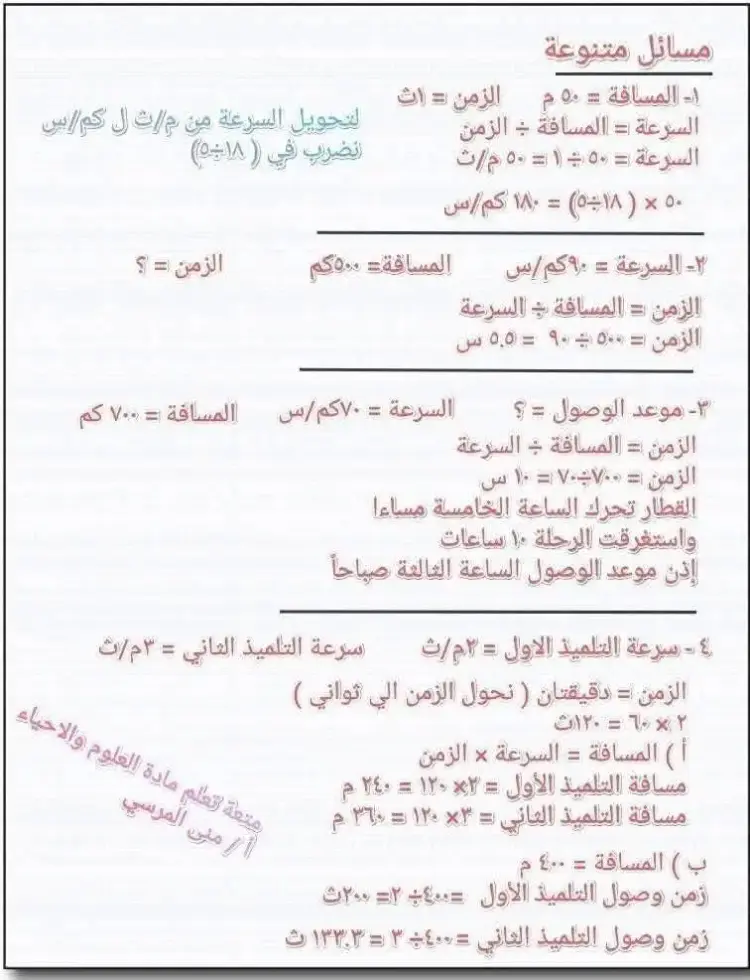 مسائل متنوعة
١- المسافة = ٥٠ م الزمن = ١ث
السرعة = المسافة ÷ الزمن
السرعة = ٥٠ ÷ ١ = ٥٠ م/ث
لتحويل السرعة من م/ث ل كم/س
نضرب في ( ١٨÷٥)
٥٠ × ( ١٨÷٥) = ١٨٠ كم/س
٢- السرعة = ٩٠كم/س المسافة= ٥٠٠كم الزمن = ؟
الزمن = المسافة ÷ السرعة
الزمن = ٥٠٠ ÷ ٩٠ = ٥.٥ س
٣- موعد الوصول = ؟ السرعة = ٧٠كم/س المسافة = ٧٠٠ كم
الزمن = المسافة ÷ السرعة
الزمن = ٧٠٠÷٧٠ = ١٠ س
القطار تحرك الساعة الخامسة مساءا
واستغرقت الرحلة ١٠ ساعات
إذن موعد الوصول الساعة الثالثة صباحاً
٤ - سرعة التلميذ الاول = ٢م/ث سرعة التلميذ الثاني = ٣م/ث
الزمن = دقيقتان ( نحول الزمن الي ثواني )
٢ × ٦٠ = ١٢٠ث
أ ) المسافة = السرعة × الزمن
مسافة التلميذ الأول = ٢× ١٢٠ = ٢٤٠ م
مسافة التلميذ الثاني = ٣× ١٢٠ = ٣٦٠ م
ب ) المسافة = ٤٠٠ م
زمن وصول التلميذ الأول =٤٠٠÷ ٢= ٢٠٠ث
زمن وصول التلميذ الثاني =٤٠٠÷ ٣ = ١٣٣.٣ ث
متعة تعلم مادة العلوم والاحياء
أ / منى المرسي